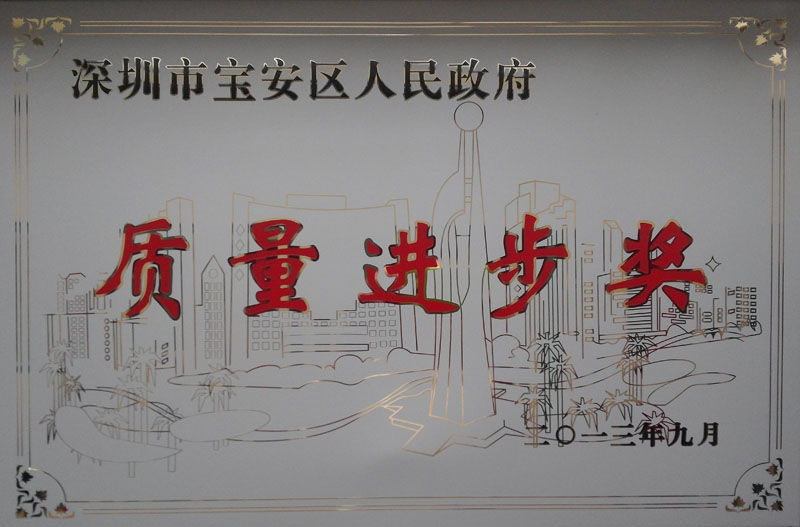 深圳市宝安区人民政府
质量进步奖
二〇一三年九月